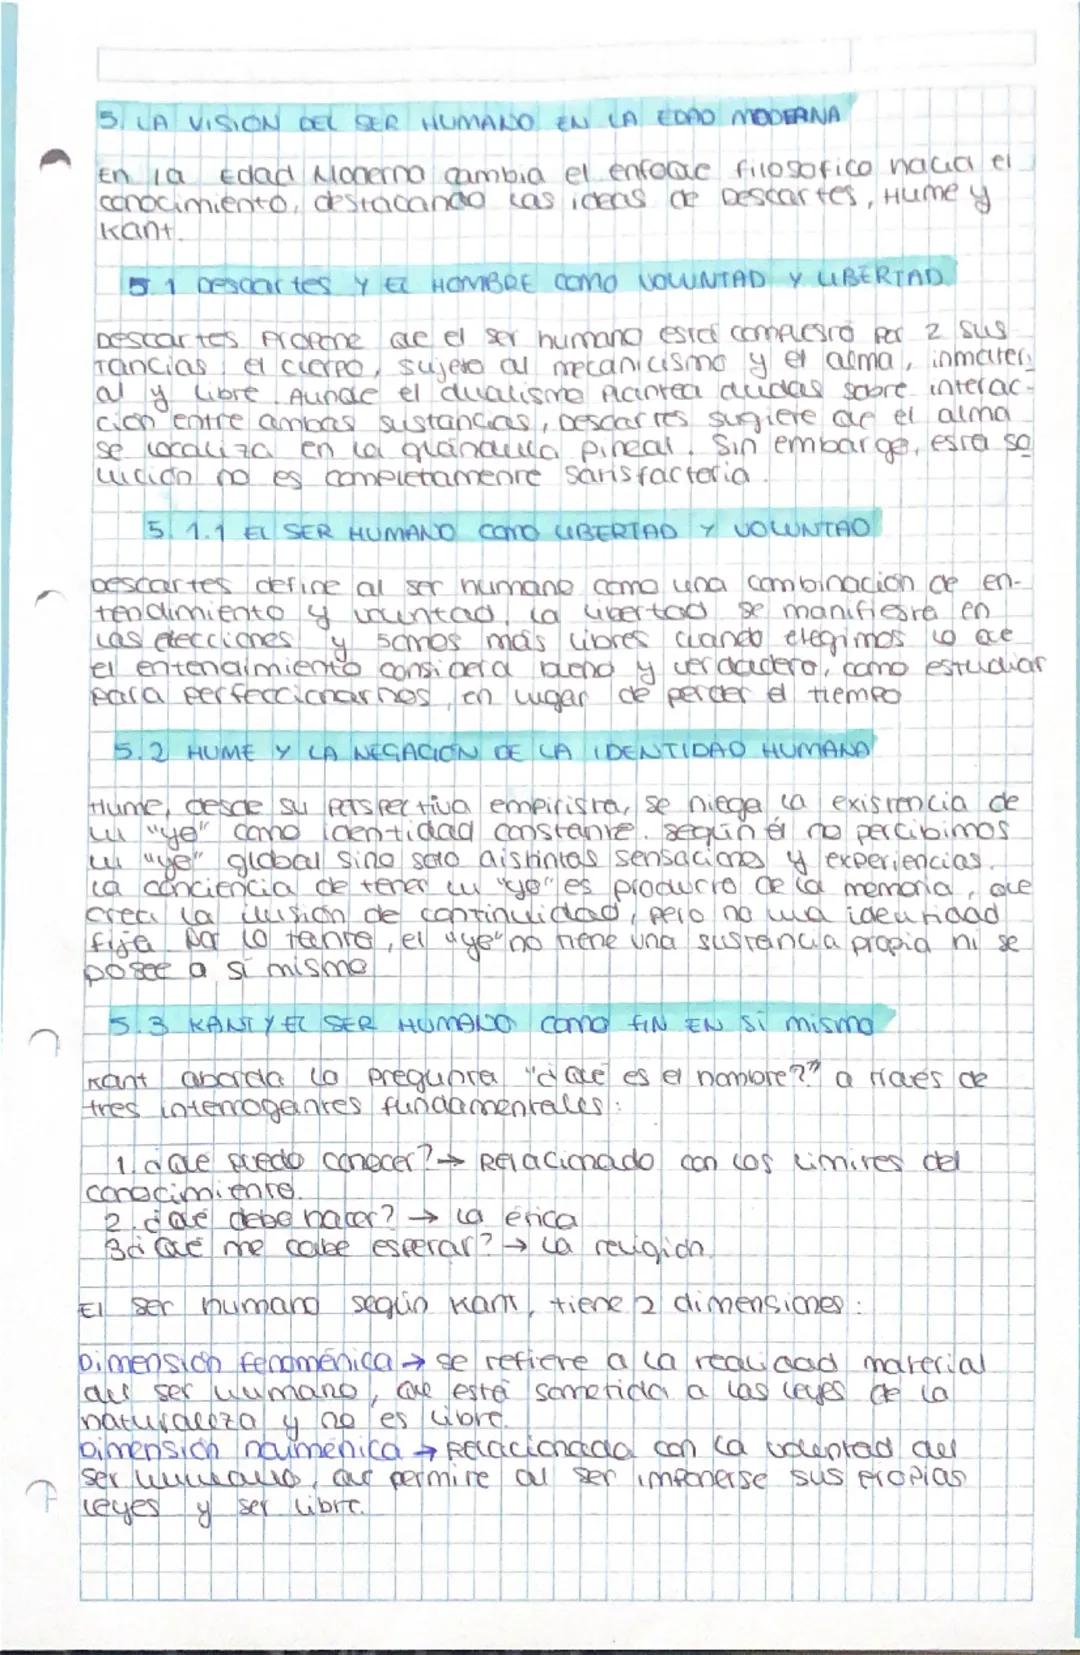 5. LA VISION DEL SER HUMANO EN LA EDAD MODERNA
En la Edad Moderna cambia el enfoque filosofico hacia el
conocimiento, destacando las ideas de Descartes, Hume y
Kant.
5.1 Descartes Y EL HOMBRE como VOLUNTAD Y LIBERTAD
Descartes propone que el ser humano está compuesto por 2 sus
tancias, el cuerpo, sujeto al mecanicismo y el alma, inmateri
al y libre. Aunque el dualismo plantea dudas sobre interac-
ción entre ambas sustancias, Descartes sugiere que el alma
se localiza en la glándula pineal. Sin embargo, esta so
lución no es completamente satisfactoria.
5.1.1 EL SER HUMANO COMO LIBERTAD Y VOLUNTAD
Descartes define al ser humano como una combinación de en-
tendimiento y voluntad, la libertad se manifiesta en
las elecciones y somos más libres cuando elegimos lo que
el entendimiento considera bueno y verdadero, como estudiar
para perfeccionarnos, en lugar de perder el tiempo
5.2 HUME Y LA NEGACIÓN DE LA IDENTIDAD HUMANA
Hume, desde su perspectiva empirista, se niega la existencia de
un "yo" como identidad constante. según él no percibimos
un "yo" global sino solo distintas sensaciones y experiencias.
La conciencia de tener un "yo" es producto de la memoria, que
crea la ilusión de continuidad, pero no una identidad
fija. Por lo tanto, el "yo" no tiene una sustancia propia ni se
posee a sí mismo
5.3 KANT Y EL SER HUMANO como FIN EN sí mismo
Kant aborda la pregunta "¿Qué es el hombre?" a través de
tres interrogantes fundamentales:
1. ¿Qué puedo conocer? → Relacionado con los límites del
conocimiento.
2. ¿Qué debo hacer? → la ética
3. ¿Qué me cabe esperar? → La religión.
El ser humano según Kant, tiene 2 dimensiones:
Dimensión fenoménica → se refiere a la realidad material
del ser humano, que está sometida a las leyes de la
naturaleza y no es libre.
Dimensión nouménica → Relacionada con la voluntad del
ser humano, que permite al ser imponerse sus propias
leyes y ser libre.